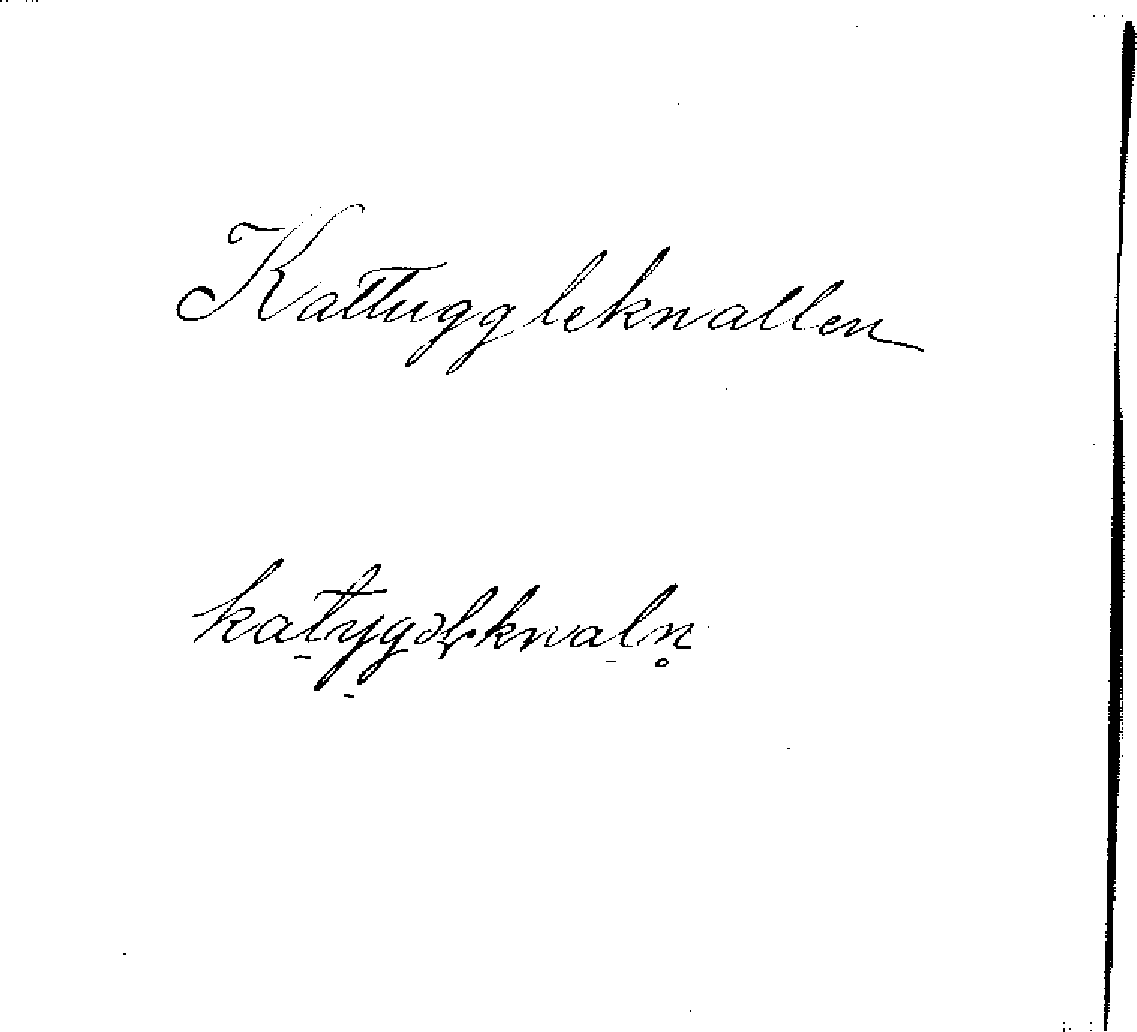 Kattuggleknallen
katygəlknaln̥